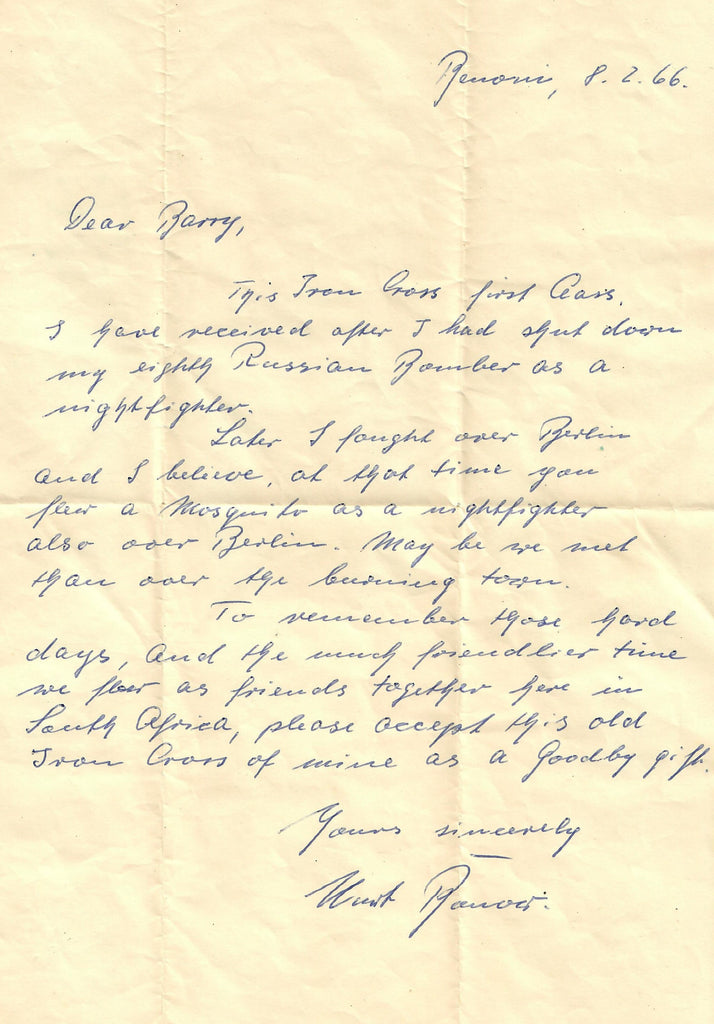 Benoni, 8.2.66.
Dear Barry,
This Iron Cross first Class.
I have received after I had shut down
my eighth Russian Bomber as a
nightfighter.
Later I fought over Berlin
and I believe, at that time you
flew a Mosquito as a nightfighter
also over Berlin. May be we met
than over the burning town.
To remember those hard
days, and the much friendlier time
we flew as friends together here in
South Africa, please accept this old
Iron Cross of mine as a Goodby gift.
Yours sincerely
Kurt